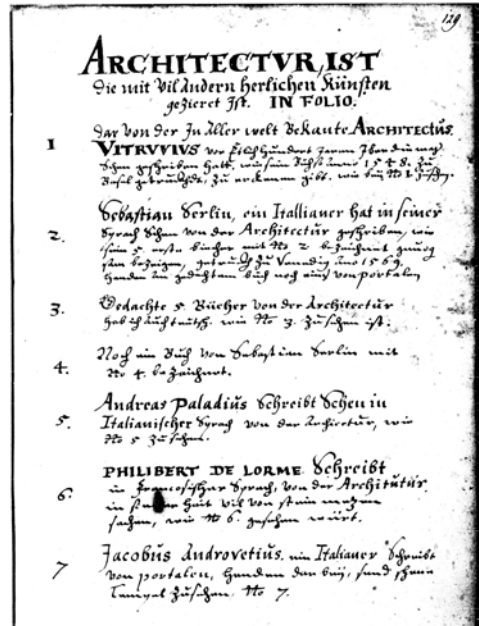 129
ARCHITECTVR, IST
die mit vil Andern herlichen Künsten
gezieret Ist. IN FOLIO.
1 dar von der In Aller welt Bekante ARCHITECTUS
VITRVVIUS vor Hundert Jaren
Schon geschriben hatt, wie sein Buch Anno 1548. Zu
Basel getruckht, Zu erkennen gibt. wie bey No 1 Zusehen.
2. Sebastian Serlin, ein Itallianer hat in seiner
Sprach Schen von der Architectur geschriben, wie
seine 5. erste bücher mit No 2 bezeichnet genug
sam bezeigen, getruckt Zu Venedig Ano 1569.
in gedachtem buch noch eins von portalen
3. Gedachte 5. Bücher von der Architectur
hab ich Auch teutsch. wie No 3. Zusehen ist.
4. Noch ein Buch von Sebastian Serlin mit
No 4. bezeichnet.
5. Andreas Paladius Schreibt Schen in
Italianischer Sprach von der Archicetur, wie
No 5 Zusehen.
6. PHILIBERT DE LORME Schreibt
in francosischer Sprach, von der Architutur,
in Zeit vil von stain metzen
sachen, wie No 6. gesehen würt.
7 Jacobus Androvetius. ein Italianer Schreibt
von portalen, dar bey, send schene
Tempel Zusehen, No 7.